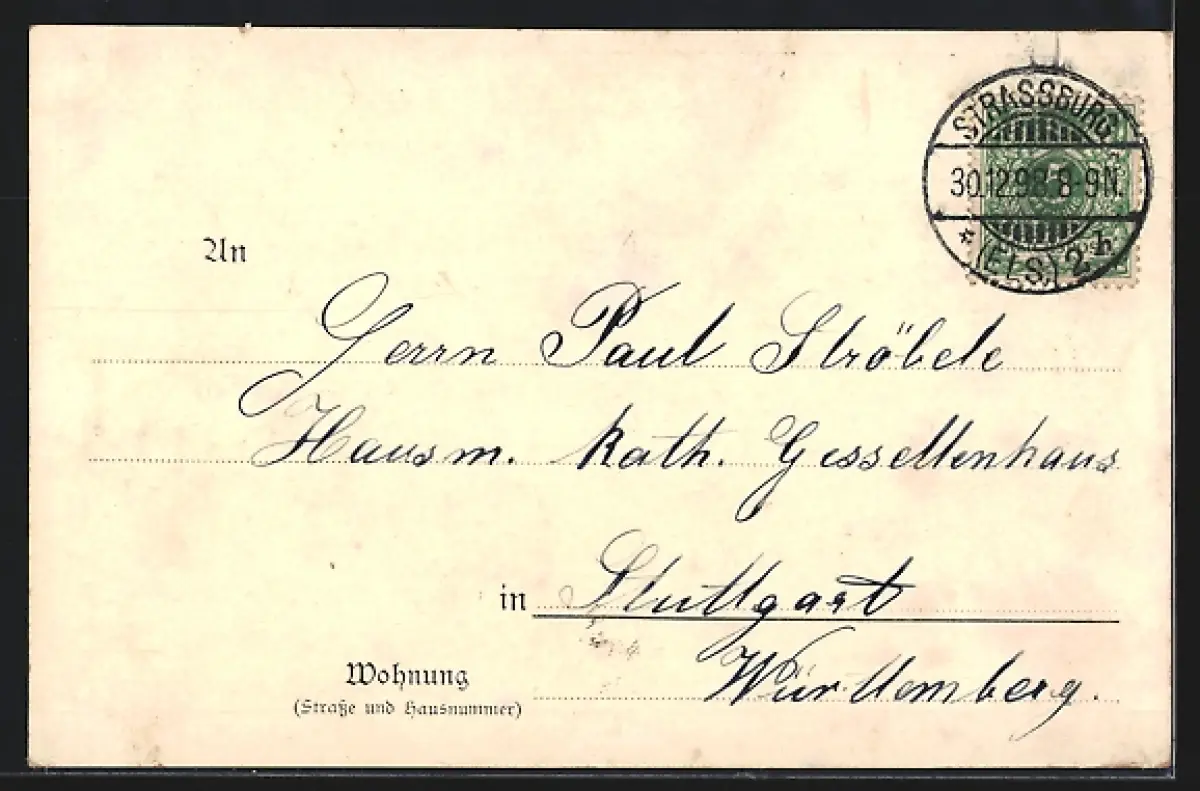 STRASSBURG
30.12.98.8-9N.
* (ELS) 2 h
An
Herrn Paul Ströbele
Hausm. Kath. Gessellenhaus
in Stuttgart
Württemberg.
Wohnung
(Straße und Hausnummer)